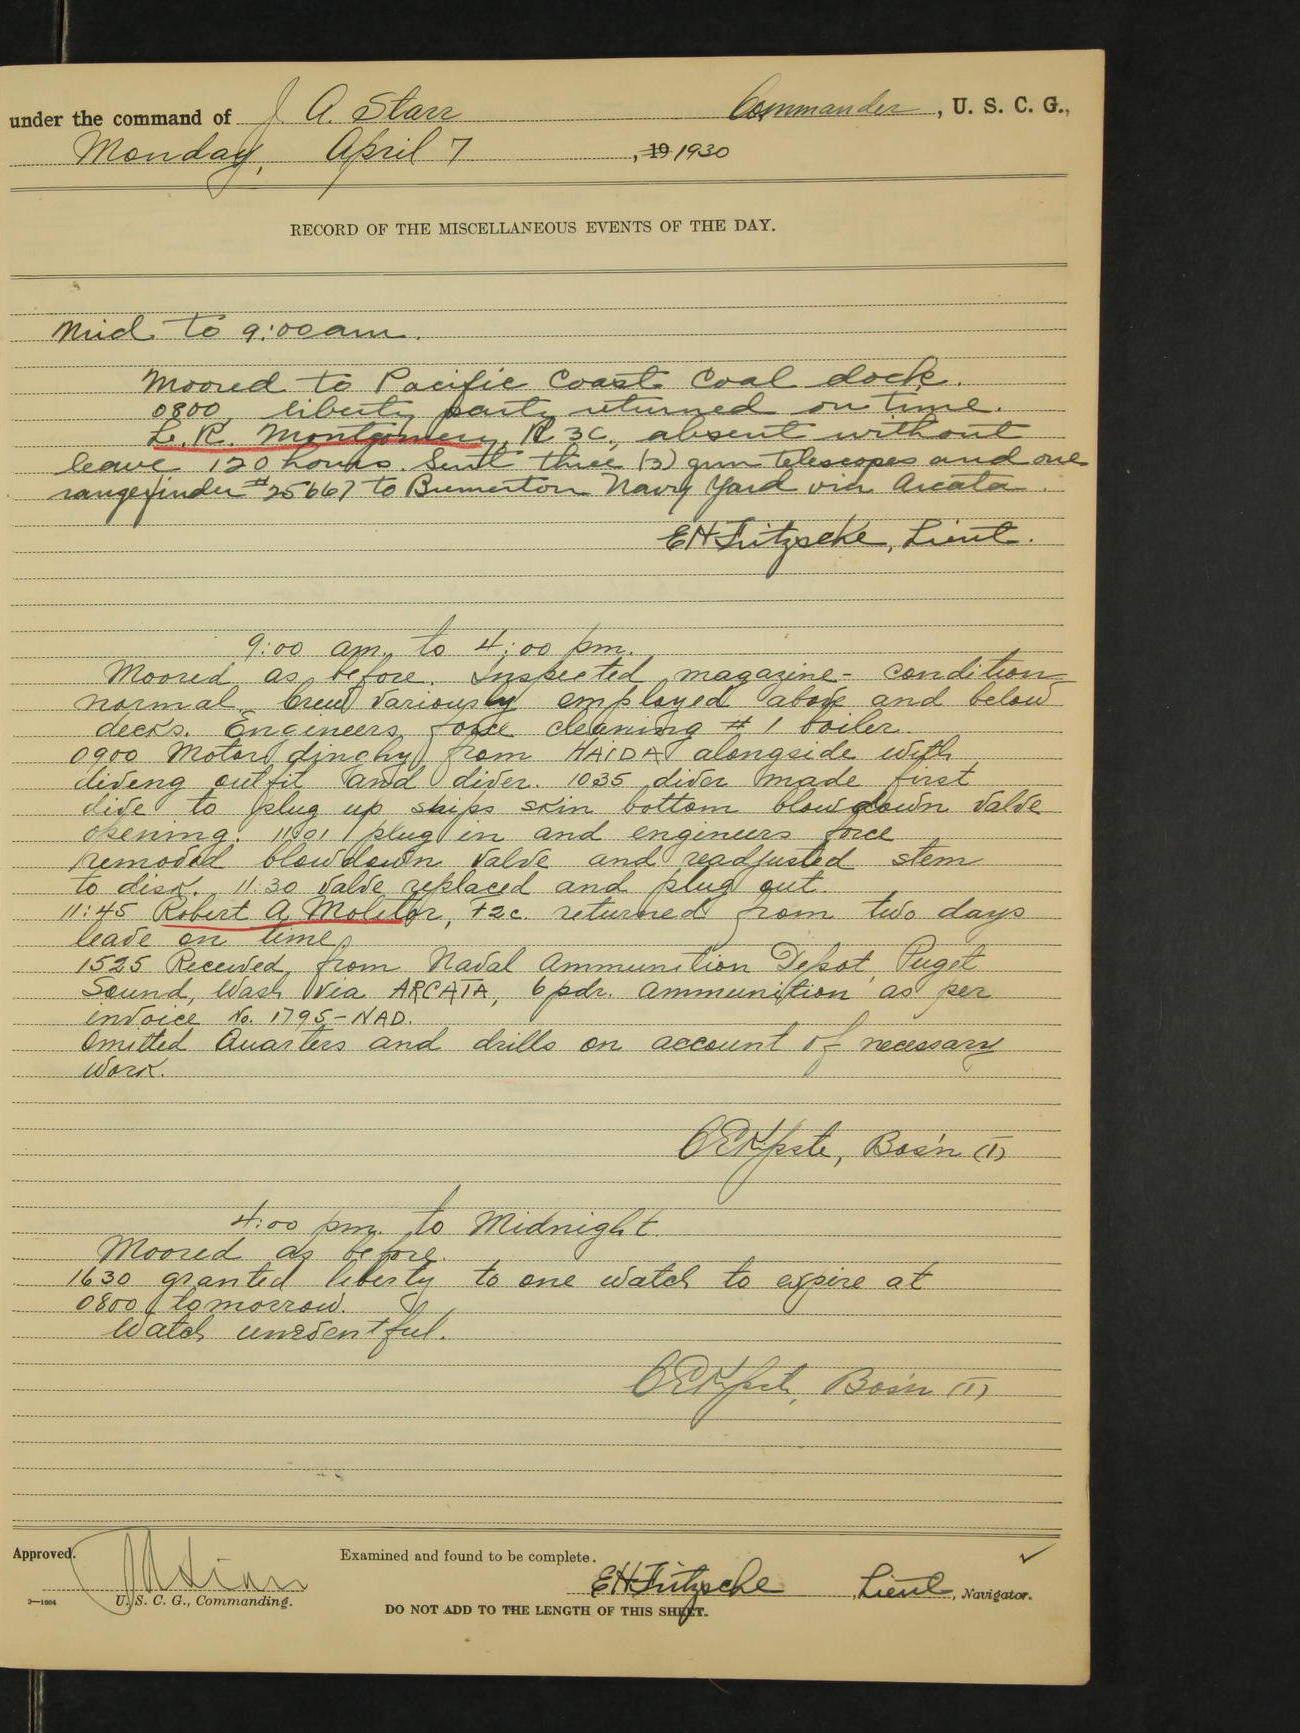 under the command of J. A. Starr Commander, U. S. C. G.,
Monday, April 7, 19 1930
RECORD OF THE MISCELLANEOUS EVENTS OF THE DAY.
Mid to 9:00 am.
Moored to Pacific Coast Coal dock.
0800 liberty party returned on time.
L. R. Montgomery, R 3c, absent without
leave 120 hours. Sent three (3) gun telescopes and one
rangefinder #25667 to Bremerton Navy Yard via Arcata.
EH Fritzsche, Lieut.
9:00 am. to 4:00 pm.
Moored as before. Inspected magazine - condition
normal. Crew variously employed above and below
decks. Engineers force cleaning # 1 boiler.
0900 Motor dinghy from HAIDA alongside with
diveng outfit and diver. 1035 diver made first
dive to plug up ships skin bottom blow down valve
opening. 11:01 plug in and engineers force
removed blowdown valve and readjusted stem
to disk. 11:30 valve replaced and plug out.
11:45 Robert A Molitor, F2c. returned from two days
leave on time
1525 Received from Naval Ammunition Depot, Puget
Sound, Wash via ARCATA, 6 pdr. ammunition as per
invoice No. 1795-NAD.
Omitted Quarters and drills on account of necessary
work.
Bos'n (T)
4:00 pm. to Midnight.
Moored as before.
1630 granted liberty to one watch to expire at
0800 tomorrow.
Watch uneventful.
Bos'n (T)
Approved. Examined and found to be complete.
EH Fritzsche, Lieut, Navigator.
2—1604 U. S. C. G., Commanding.
DO NOT ADD TO THE LENGTH OF THIS SHEET.